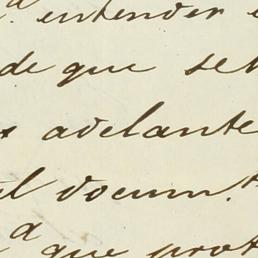 entender
de que se
adelante
el docum.to
que prot